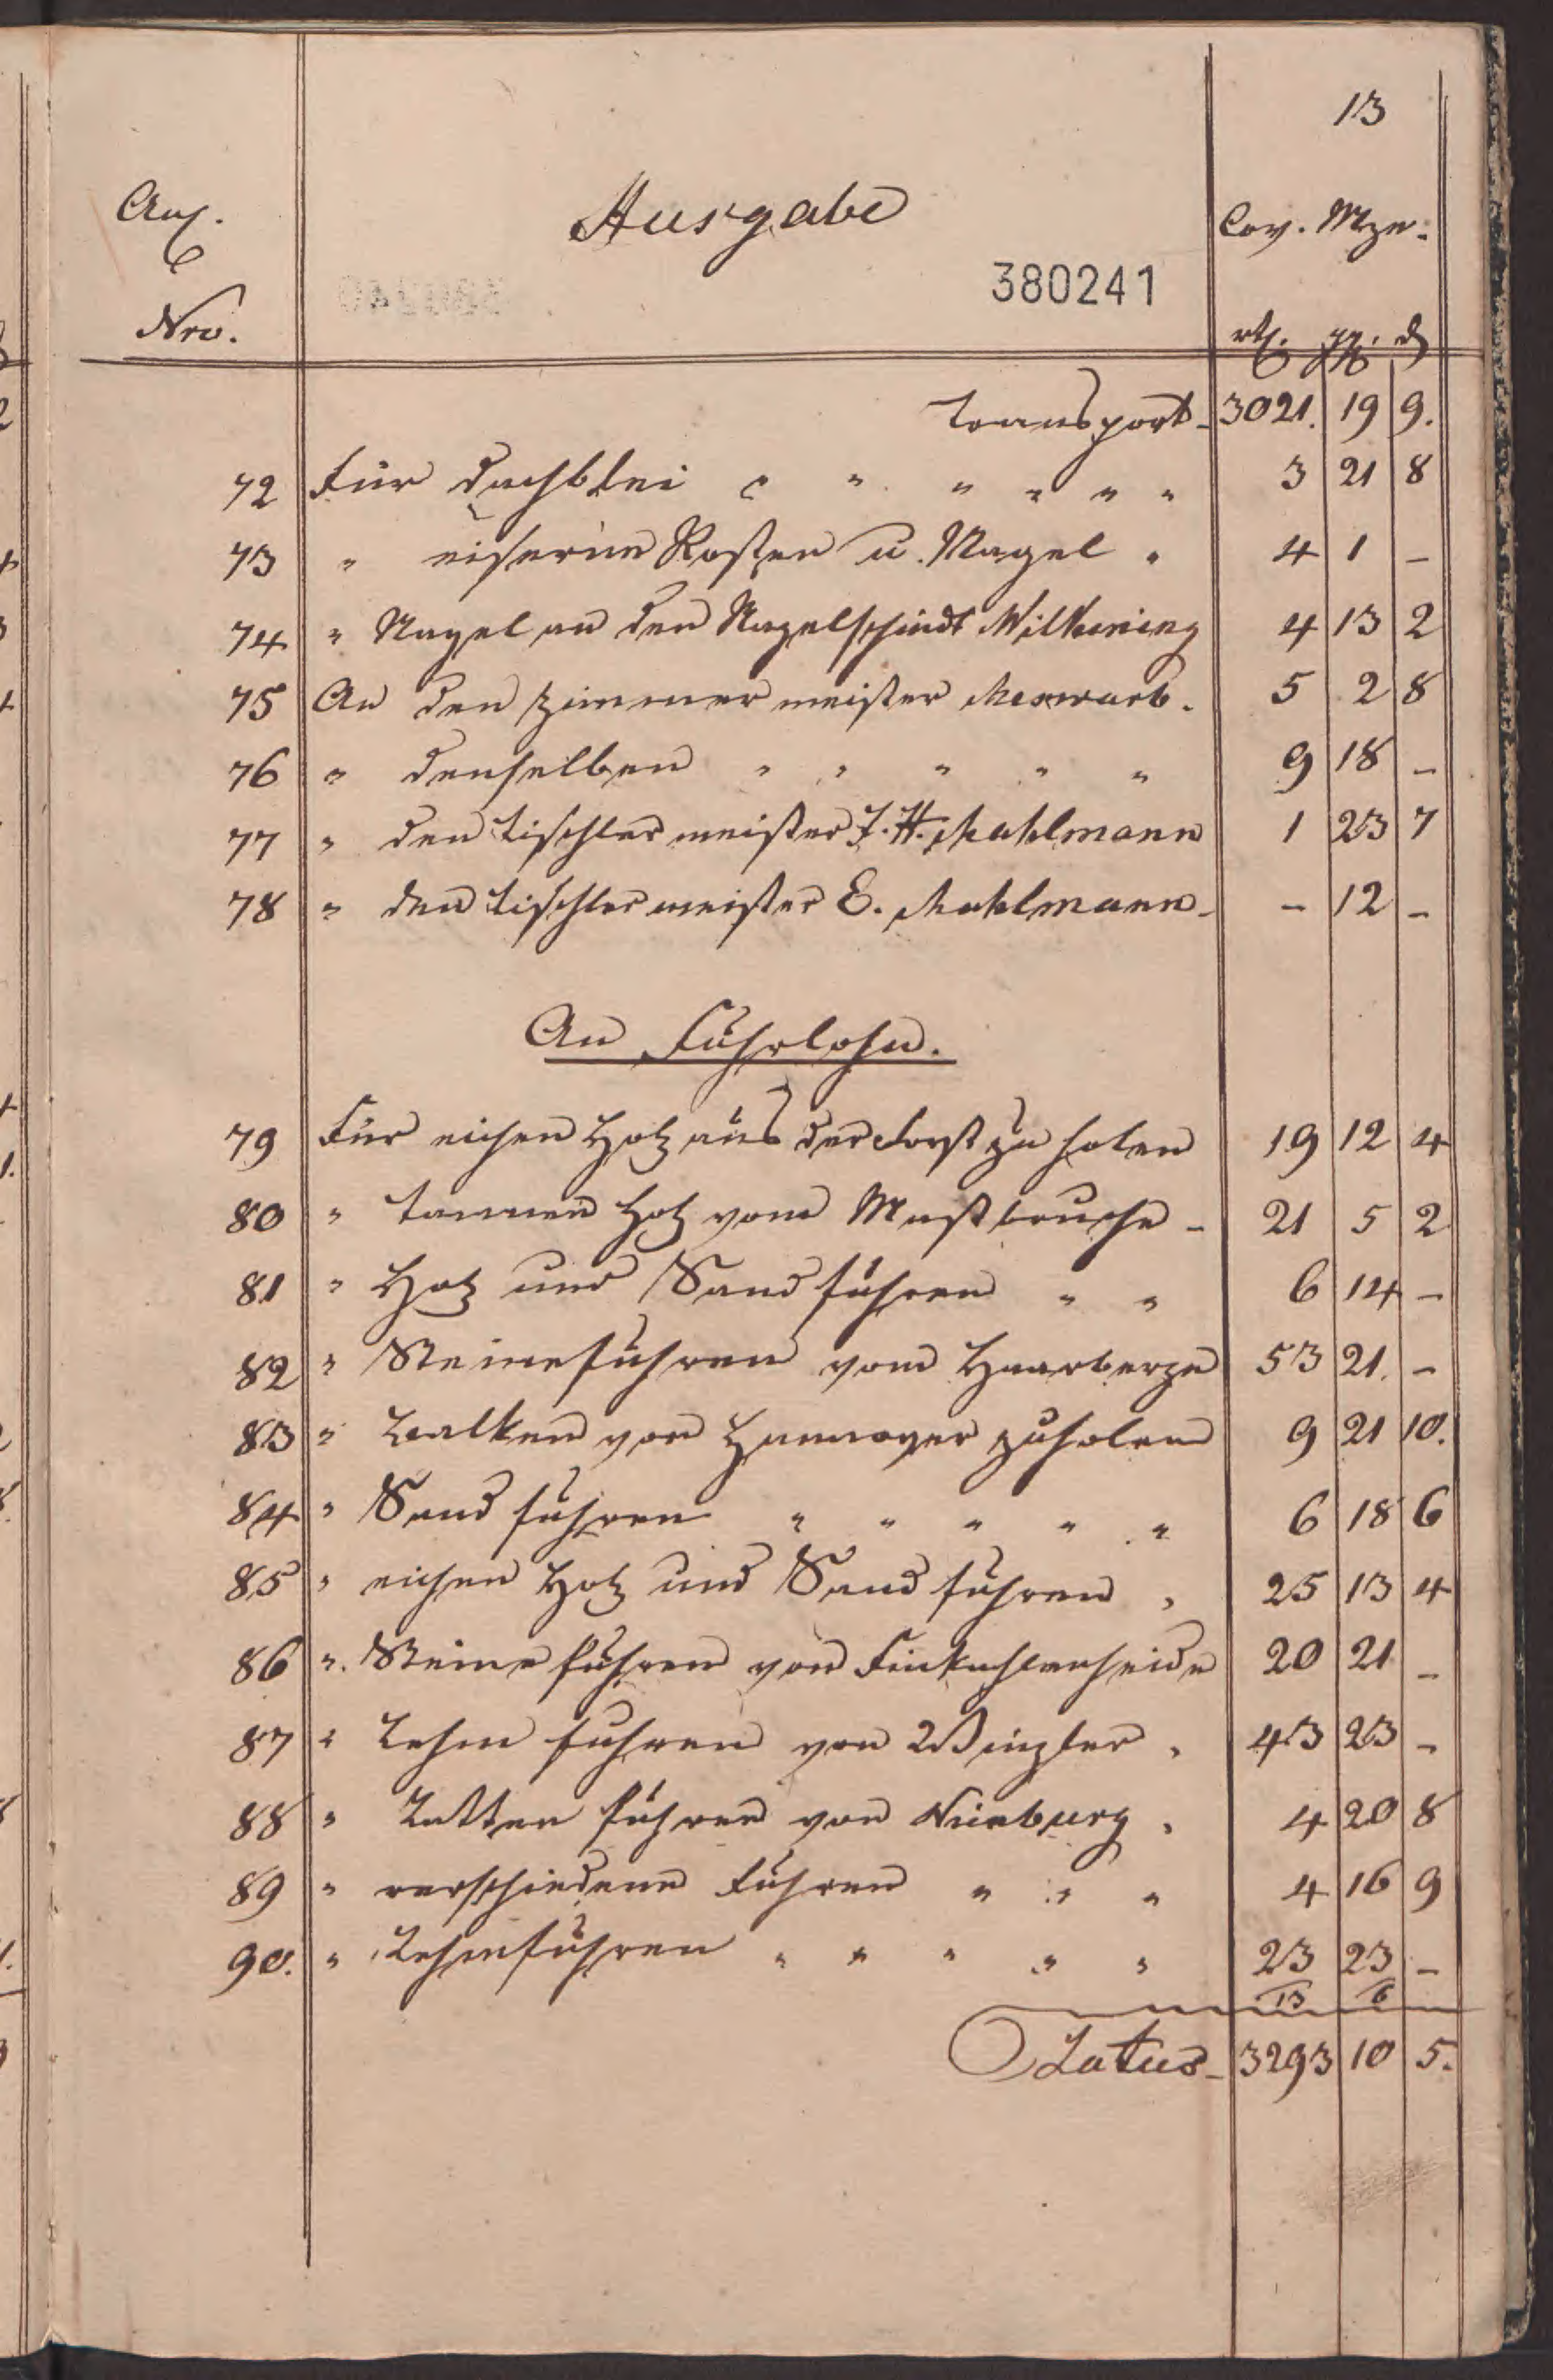 13
Anl.
Ausgabe
Cov. Mze.
380241
Nro.
rtl. ggr. d
Transport 3021. 19 9.
72 Für Dachblei " " " " " " 3 21 8
73 " eiserne Rosten u. Nagel " 4 1 –
74 " Nagel an den Nagelschmidt Wilkening 4 13 2
75 An den Zimmermeister Meswarb. 5 2 8
76 " denselben " " " " " 9 18 –
77 " den Tischlermeister J. H. Mahlmann 1 23 7
78 " den Tischlermeister E. Mahlmann – – 12 –
An Fuhrlohn.
79 Für eichen Holz aus der Forst zu holen 19 12 4
80 " tannen Holz vom Mastbruche – 21 5 2
81 " Holz und Sand fuhren " " 6 14 –
82 " Steinefuhren vom Haarberge 53 21. –
83 " Balken von Hannover zu holen 9 21 10.
84 " Sand fuhren " " " " " 6 18 6
85 " eichen Holz und Sand fuhren " 25 13 4
86 " Steine fuhren von 20 21 –
87 " Lehm fuhren von Winzlar " 43 23 –
88 " Latten fuhren von Nienburg " 4 20 8
89 " verschiedene Fuhren " " " 4 16 9
90. " Lehmfuhren " " " " " 23 23 –
13 6
Latus 3293 10 5.